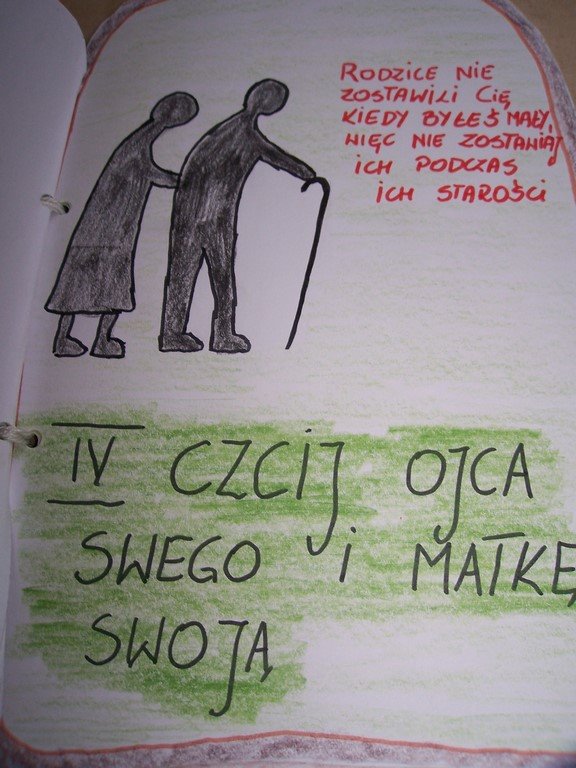 RODZICE NIE
ZOSTAWILI CIĘ
KIEDY BYŁEŚ MAŁY,
WIĘC NIE ZOSTAWIAJ
ICH PODCZAS
ICH STAROŚCI
IV CZCIJ OJCA
SWEGO i MATKĘ
SWOJĄ